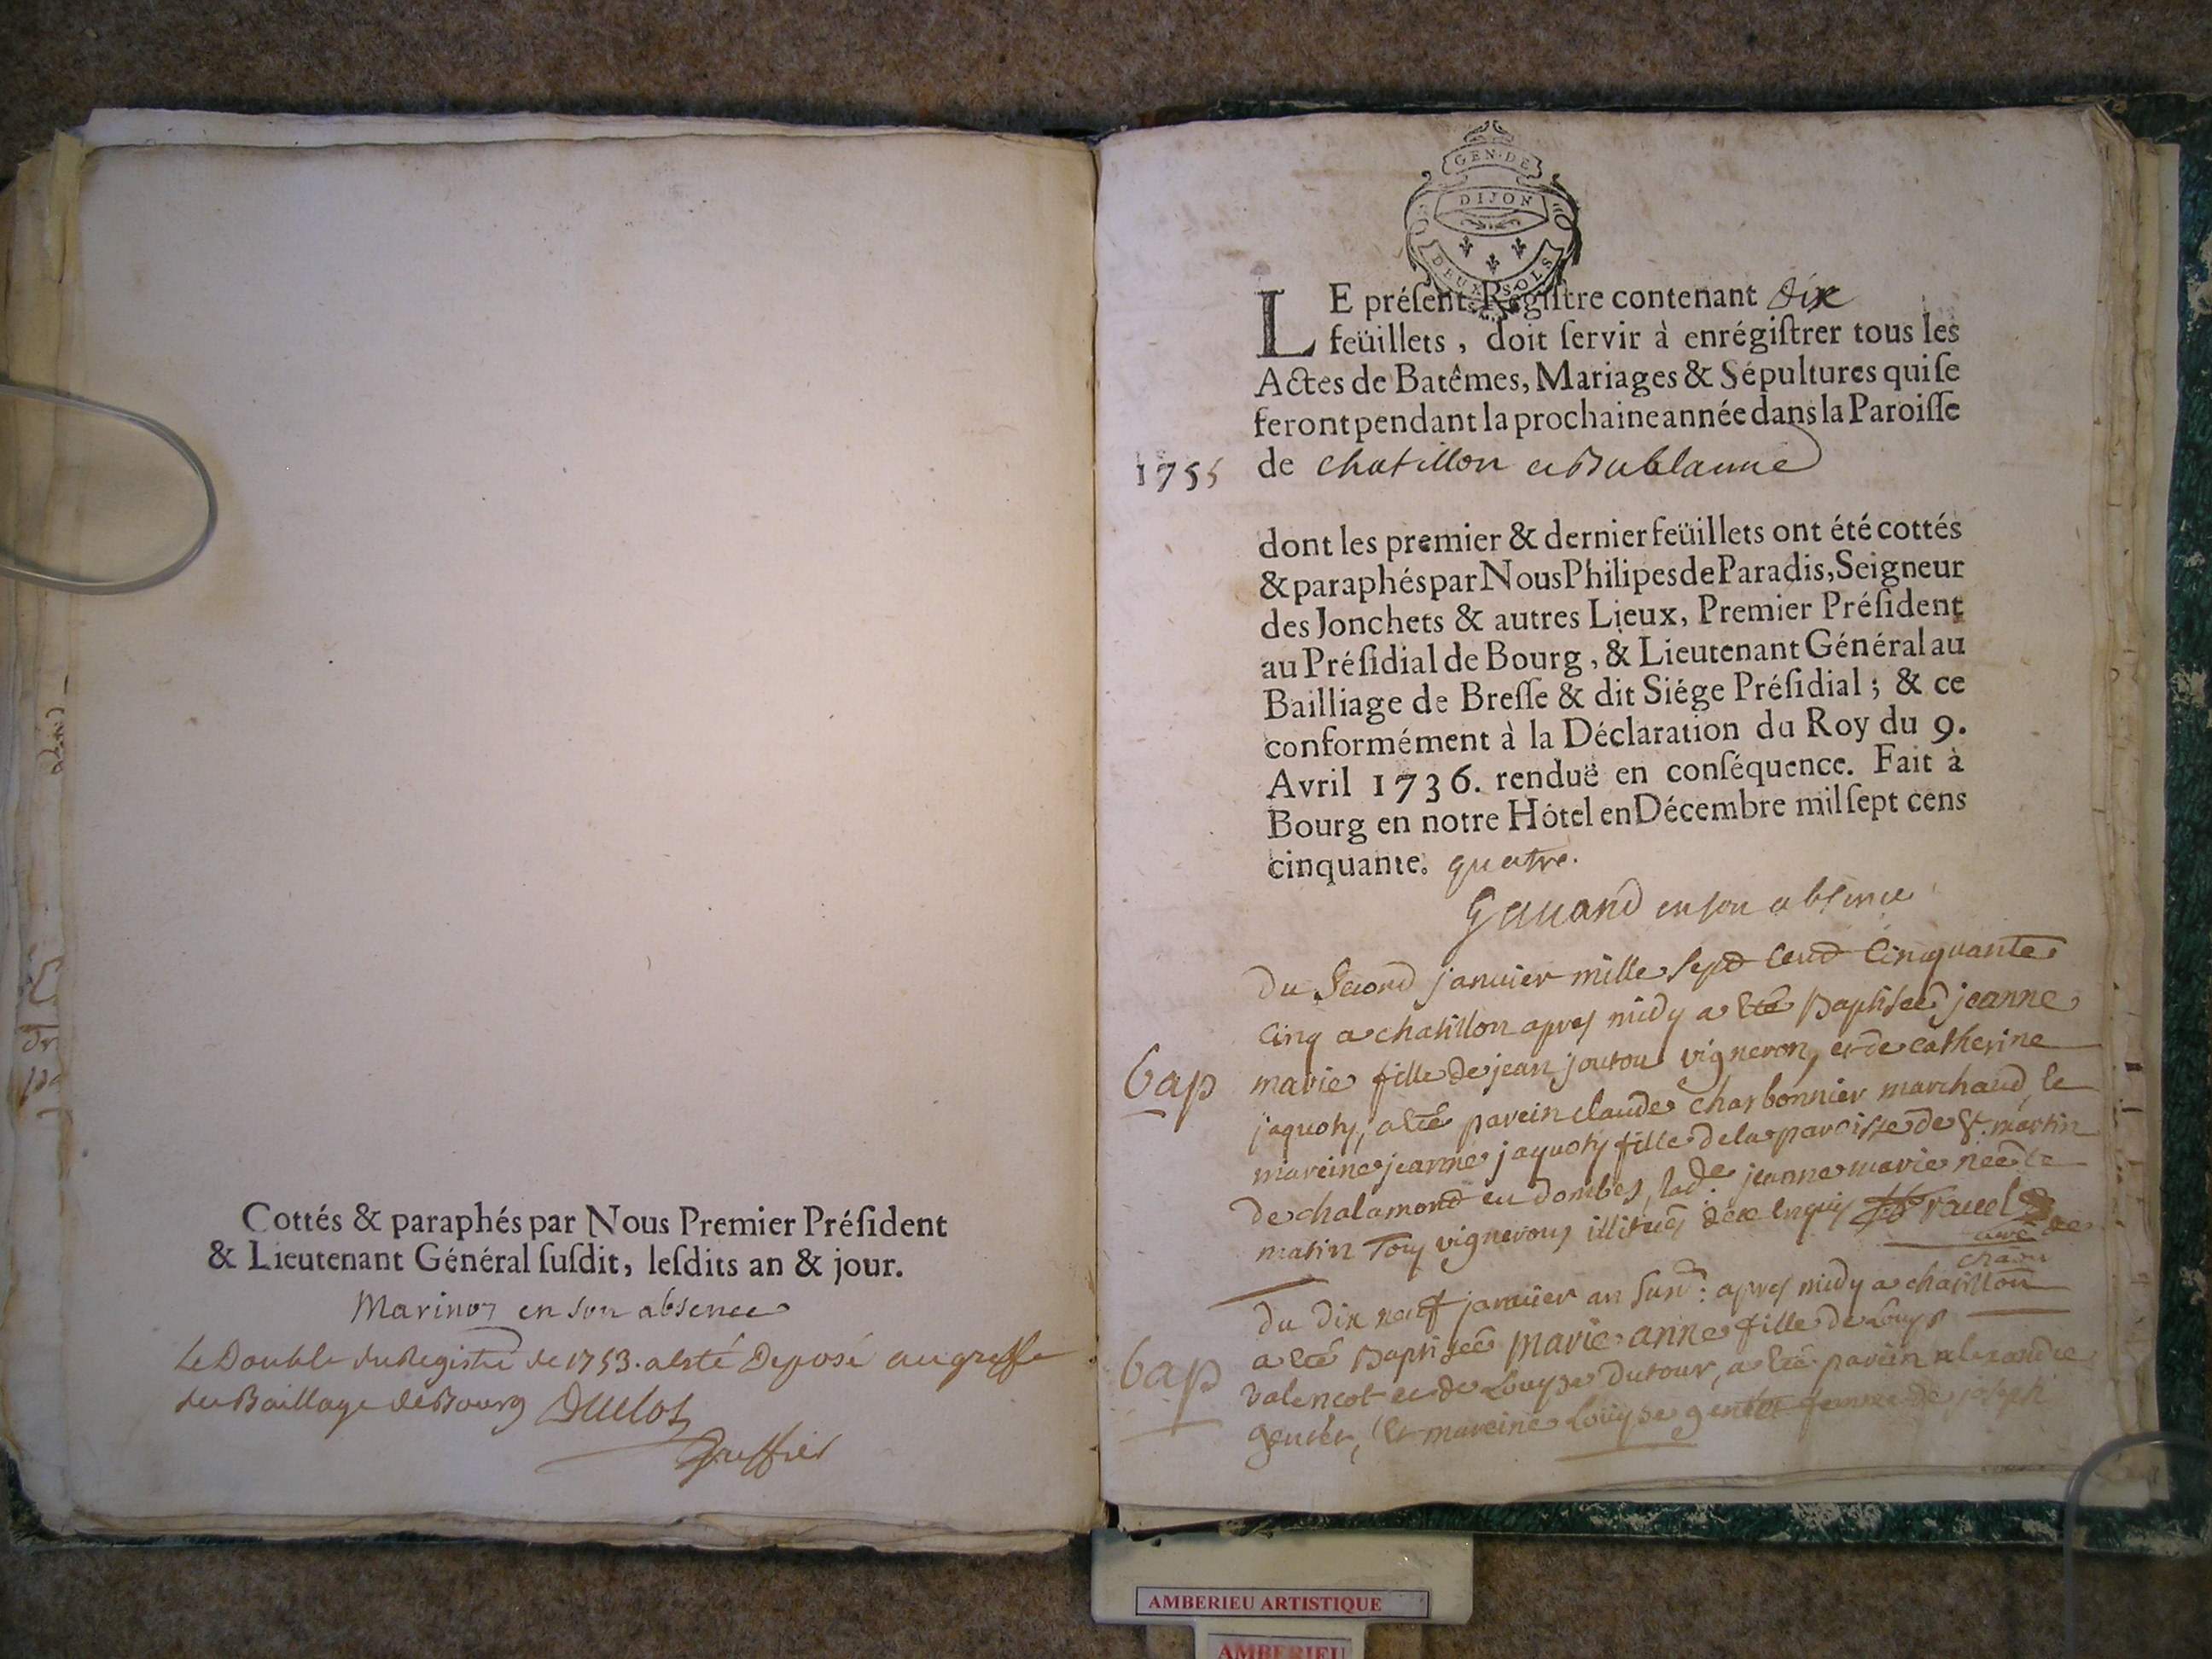 Cottés & paraphés par Nous Premier Préſident
& Lieutenant Général ſuſdit, leſdits an & jour.
en son absence
Le Double du Registre de 1753. a esté Deposé au greffe
du Baillage de Bourg Duclos
Greffier
GEN·DE
DIJON
DEUX SOLS
LE préſent Regiſtre contenant dix
feüillets, doit ſervir à enrégiſtrer tous les
Actes de Batêmes, Mariages & Sépultures qui ſe
feront pendant la prochaine année dans la Paroiſſe
1755 de chatillon et Bublanne
dont les premier & dernier feüillets ont été cottés
& paraphés par Nous Philipes de Paradis, Seigneur
des Jonchets & autres Lieux, Premier Préſident
au Préſidial de Bourg, & Lieutenant Général au
Bailliage de Breſſe & dit Siége Préſidial; & ce
conformément à la Déclaration du Roy du 9.
Avril 1736. renduë en conſéquence. Fait à
Bourg en notre Hôtel en Décembre mil ſept cens
cinquante. quatre.
en son absence
Du Second janvier mille Sept Cent Cinquante
Cinq a chatillon apres midy a Eté Baptisée jeanne
bap marie fille de jean joutou vigneron, et de catherine
jaquoty, a Eté parein claude Charbonnier marchand, le
mareine jeanne jaquoty fille de la paroisse de St. martin
de chalamond en dombes, lade. jeanne marie née le
matin Tous vignerons illiterés
Du Dix neuf janvier an Susd: apres midy a chatillon
bap a Eté Baptisée marie anne fille de Louys
valencot et de Louyse Dutour, a Eté parein alexandre
et mareine Louyse femme de joseph
AMBERIEU ARTISTIQUE
AMBERIEU